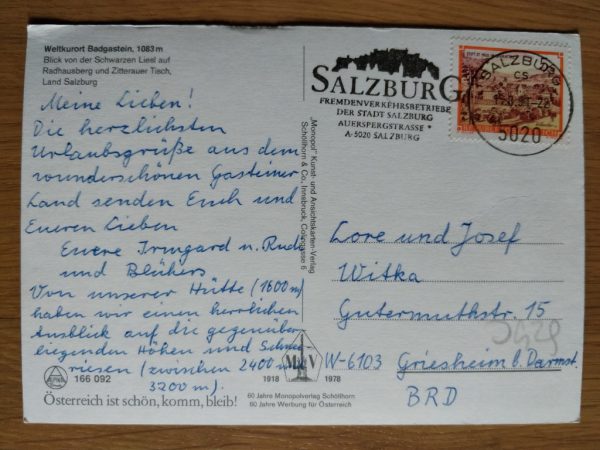 Weltkurort Badgastein, 1083 m
Blick von der Schwarzen Liesl auf
Radhausberg und Zitterauer Tisch,
Land Salzburg
Meine Lieben!
Die herzlichsten
Urlaubsgrüße aus dem
wunderschönen Gasteiner
Land senden Euch und
Eueren Lieben
Euere Irmgard u. Rudi
und Blühers
Von unserer Hütte (1600 m)
haben wir einen herrlichen
Ausblick auf die gegenüber
liegenden Höhen und Schnee
riesen (zwischen 2400 und
3200 m).
166 092
Österreich ist schön, komm, bleib!
"Monopol" Kunst- und Ansichtskarten-Verlag
Schöllhorn & Co., Innsbruck, Colingasse 6
MSV
1918 1978
60 Jahre Monopolverlag Schöllhorn
60 Jahre Werbung für Österreich
SALZBURG
FREMDENVERKEHRSBETRIEBE
DER STADT SALZBURG
AUERSPERGSTRASSE
A-5020 SALZBURG
SALZBURG
5020
Lore und Josef
Witka
Gutermuthstr. 15
W-6103 Griesheim b. Darmst.
BRD